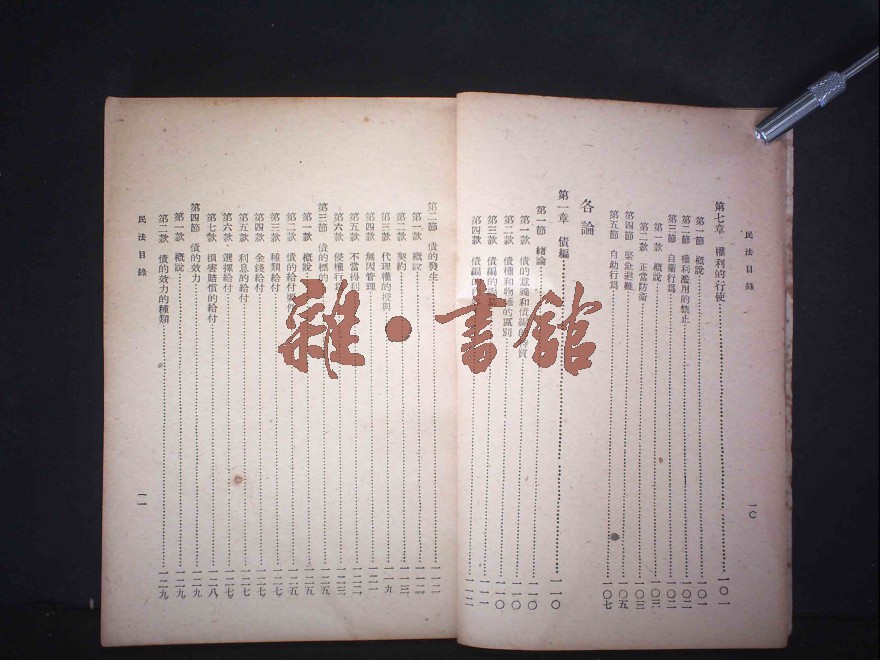 民法目錄
一〇
第七章 權利的行使……一〇一
第一節 概說……一〇一
第二節 權利濫用的禁止……一〇二
第三節 自衛行爲……一〇二
第一款 概說……一〇三
第二款 正當防衛……一〇三
第四節 緊急避難……一〇五
第五節 自助行爲……一〇七
各論
第一章 債編……一一〇
第一節 緒論……一一〇
第一款 債的意義和債編的
第二款 債權和物權的區別……一一〇
第三款 債編的
第四款 債編的
第二節 債的發生……一一二
第一款 概說……一一二
第二款 契約……一一三
第三款 代理權的授與……一一九
第四款 無因管理……一二一
第五款 不當得利
第六款 侵權行爲……一二三
第三節 債的標的……一二五
第一款 概說……一二五
第二款 債的給付
第三款 種類給付……一二七
第四款 金錢給付……一二七
第五款 利息的給付……一二七
第六款 選擇給付……一二七
第七款 損害賠償的給付……一二八
第四節 債的效力……一二九
第一款 概說……一二九
第二款 債的效力的種類……一二九
民法目錄
一一
雜·書館